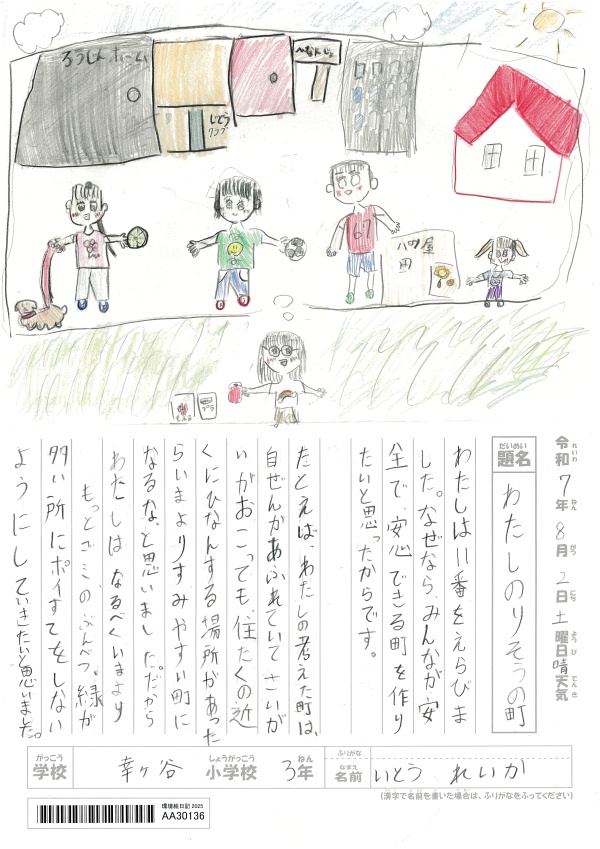 ろうじんホーム
じどう
クラブ
ひなんじょ
67
八百屋
もえる
プラ
令和7年8月2日土曜日晴天気
れいわ ねん がつ にち ようび てんき
だいめい
題名
わたしのりそうの町
わたしは11番をえらびま
した。なぜなら、みんなが安
全で、安心できる町を作り
たいと思ったからです。
たとえば、わたしの考えた町は、
自ぜんがあふれていてさいが
いがおこっても、住たくの近
くにひなんする場所があった
らいまよりすみやすい町に
なるな、と思いました。だから
わたしは なるべくいまより
もっとごミのぶんべつ。緑が
多い所にポイすてをしない
ようにしていきたいと思いました。
がっこう
学校
幸ヶ谷
しょうがっこう
小学校
3年
ねん
ふりがな
なまえ
名前
いとう れいか
(漢字で名前を書いた場合は、ふりがなをふってください)
環境絵日記 2025
AA30136